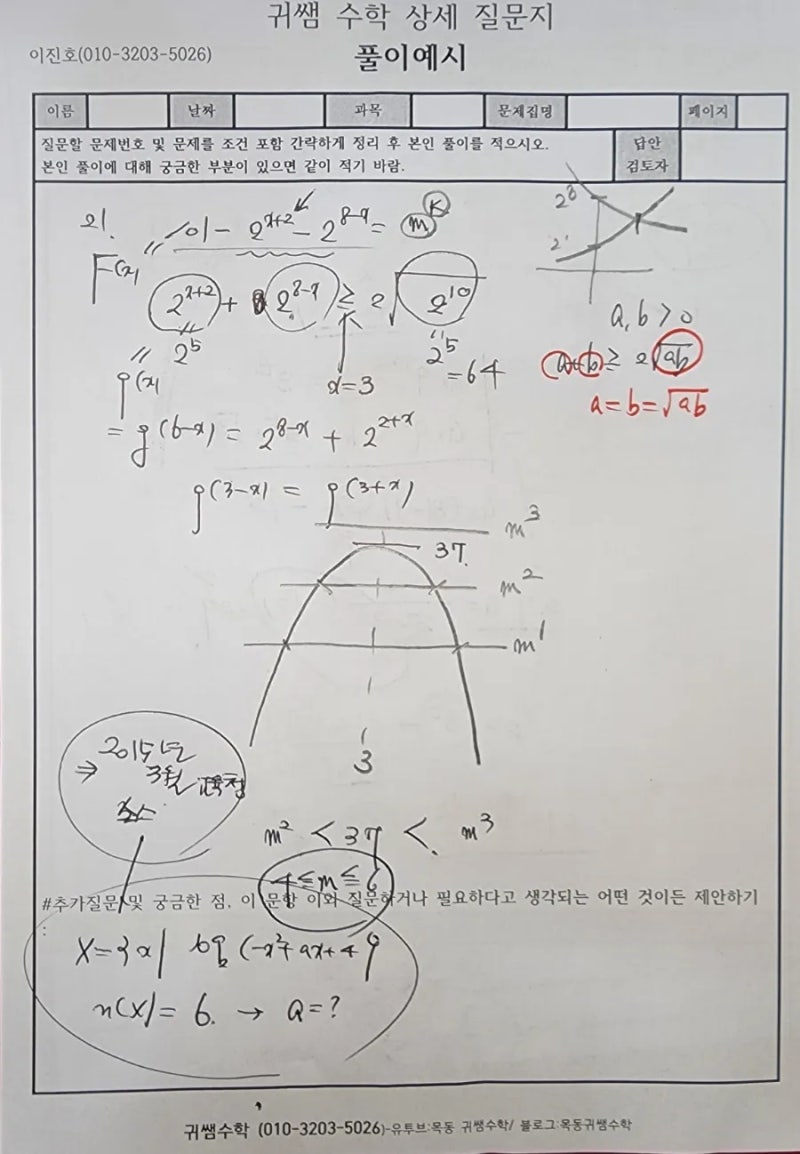 귀쌤 수학 상세 질문지
이진호(010-3203-5026)
풀이예시
이름 날짜 과목 문제집명 페이지
질문할 문제번호 및 문제를 조건 포함 간략하게 정리 후 본인 풀이를 적으시오.
본인 풀이에 대해 궁금한 부분이 있으면 같이 적기 바람.
답안
검토자
2^8
2^1
21. 101 - 2^{x+2} - 2^{8-x} = m^k
F(x)
2^{x+2} + 2^{8-x} ≥ 2√2^{10}
2^5
2^5
= 64
x=3
a, b > 0
a+b ≥ 2√ab
a = b = √ab
g(x)
= g(6-x) = 2^{8-x} + 2^{2+x}
g(3-x) = g(3+x)
m^3
37.
m^2
m^1
3
⇒ 2015년
3월 교육청
m^2 < 37 < m^3
4 ≤ m ≤ 6
#추가질문 및 궁금한 점, 이 문항 이와 질문하거나 필요하다고 생각되는 어떤 것이든 제안하기
:
X = {x| log_2 (-x^2+ax+4)}
n(X) = 6. → a = ?
귀쌤수학 (010-3203-5026)-유투브:목동 귀쌤수학/ 블로그:목동귀쌤수학